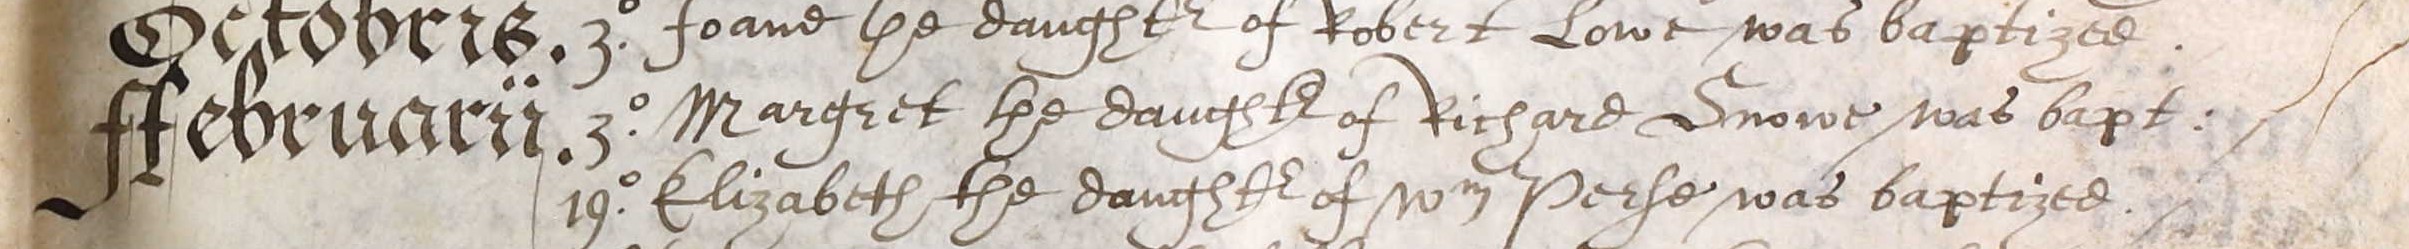 Octobris. 3.º Joane the daught^r of Robert Lowe was baptized.
ffebruarii. 3.º Margret the daught^r of Richard Snowe was bapt:
19.º Elizabeth the daught^r of W^m Perse was baptized.